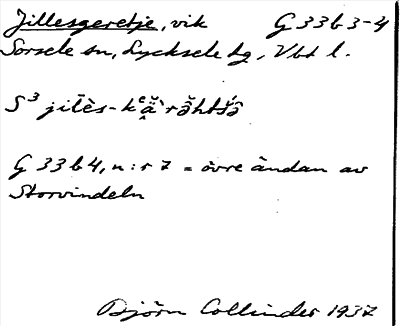 Jillesgeretje, vik G 33 b 3-4
Sorsele sn, Lycksele lg, Vbt l.
S³ jilēs-
G 33 b 4, n:r 7 = övre ändan av
Storvindeln
Björn Collinder 1937